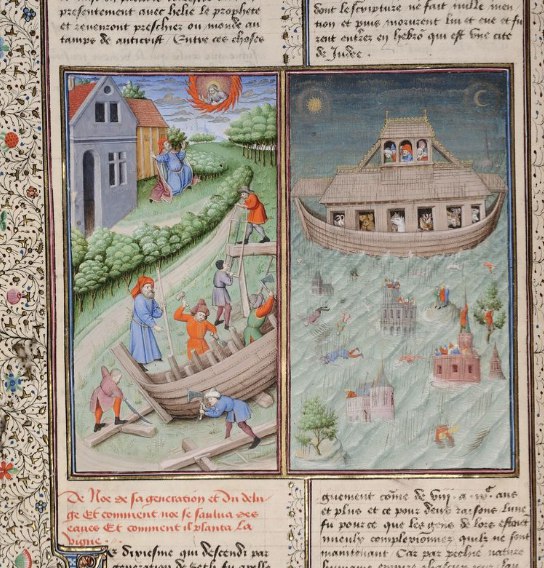 presentement avec helie le prophete
et revenront preschier ou monde au
tamps de antcrist Entre ces choses
dont lescripture ne fait nulle men
tion et puis morurent lui et eve et fu
rent entrez en hebron qui est une cite
de Judee.
De Noe de sa generation et du delu-
ge Et comment noe se saulva des
eaues Et comment il planta La
vigne
diviesme qui descendi par
generation de seth fu
quement come de vij. a ans
et plus et ce pour deux raisons lune
fu pource que les gens de lors
mieulx complexionnez quilz ne sont
maintenant Car par pechie nature
humaine